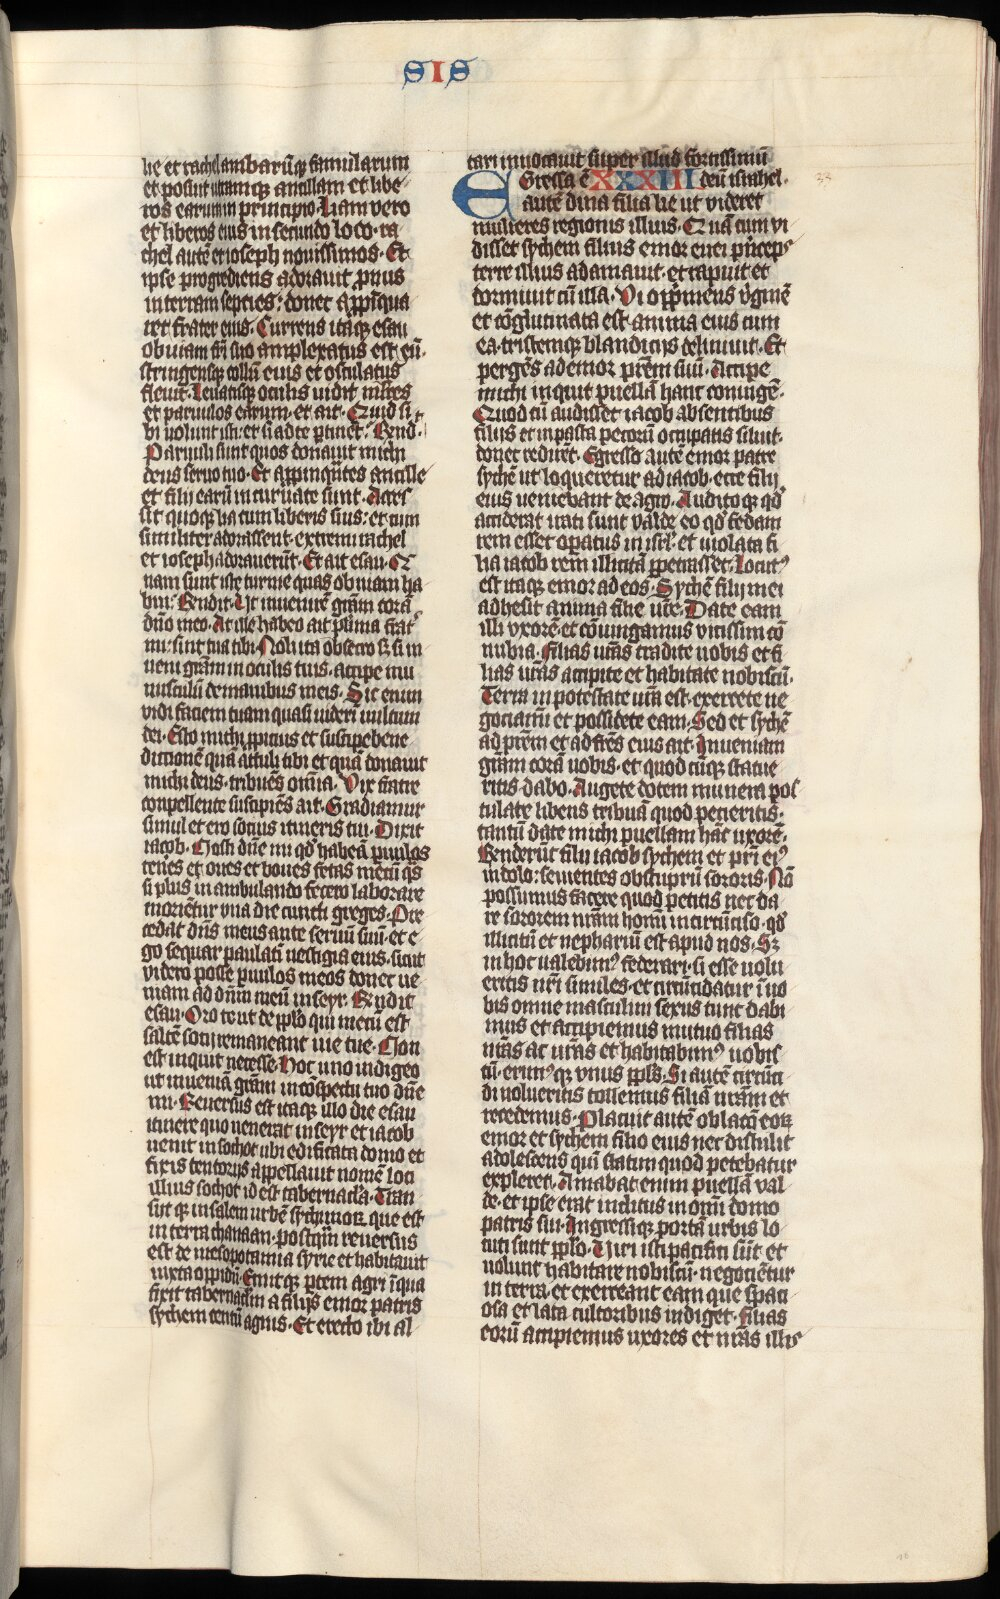 SIS
lie et rachel ambarūqꝫ famularum
et posuit utramqꝫ ancillam et libe
ros earumin principio. Liam vero
et liberos eius in secundo loco. ra
chel autē et ioseph nouissimos. Et
ipse progrediens adorauit pnus
in terram septies: donec appīqua
ret frater eius. Currens itaqꝫ esau
obuiam fr̄i suo amplexatus est eū.
stringensqꝫ collū euis et osculatus
fleuit. Leuatisqꝫ oculis uidit mlr̄es
et paruulos earum. et ait. Quid si
bi uolunt isti. et si ad te ptinet. Rend.
Paruuli sunt quos donauit michi
deus seruo tuo. Et appinqūtes ancille
et filij earū incuruate sunt. Acces
sit quoqꝫ lia cum liberis suis: et cum
similiter adorassent. extremi rachel
et ioseph adorauerūt. Et ait esau. Q
nam sunt iste turme quas obuiam ha
bui. Rendit. Ut inuenirē grām corā
dn̄o meo. At ille habeo ait plima frat
mi. sint tua tibi. Noli ita obsecro sꝫ si in
ueni grām in oculis tuis. accipe mu
nusculū de manibus meis. Sic enim
vidi faciem tuam quasi uideri uultum
dei. Esto michi ppitius et suscipe bene
dictionē quā attuli tibi et quā donauit
michi deus. tribuēs omīa. Vix fratre
conpellente suscipiēs ait. Gradiamur
simul et ero socius itineris tui. Dixit
iacob. Nosti dn̄e mi qd̓ habeā pauulos
teneēs et oues et boues fetas mecū qͣs
si plus in ambulando fecero laborare
moriētur vna die cuncti greges. Pre
cedat dn̄s meus ante seruū suū. et e
go sequar paulatī uestigia eius. sicut
videro posse puulos meos donec ue
niam ad dn̄m meū in seyr. Rendit
esau. Oro te ut de pplo qui mecū est
saltē socij remaneant uie tue. Non
est inquit necesse. Hoc uno indigeo
ut inueniā grām in cōspectu tuo dn̄e
mi. Reuersus est itaqꝫ illo die esau
itinere quo uenerat in seyr. et iacob
uenit in sochot ubi edificata domo et
fixis tentorijs appellauit nomē loci
illius sochot id est tabernacla. Tran
sijt qꝫ in salem urbē sychimoꝝ que est
in terra chanaan. postqm̄ reuersus
est de mesopotamia syrie et habitauit
iuxta oppidū. Emitqꝫ ptem agri ī qua
fixit tabernaclm a filijs emor patris
sychem centū agnis. Et erecto ibi al
tari inuocauit super illud fortissimū
Egressa ē XXXIIII deū israhel.
autē dina filia lie ut videret
mulieres regionis illius. Quā cum vi
disset sychem filius emor euei pͥnceps
terre illius adamauit. et rapuit et
dormiuit cū illa. Vi opp̄mens v̓ginē
et cōglutinata est anima eius cum
ea. tristemqꝫ blandicijs deliniuit. Et
pergēs ad emor pr̄em suū. Accipe
michi inquit puellā hanc coniugē.
Quod cū audisset iacob absentibus
filijs et in pastu pecorū occupatis siluit.
donec redirēt. Egresso autē emor patre
sychē ut loqueretur ad iacob. ecce filij
eius veniebant de agro. Auditoqꝫ qd̓
acciderat irati sunt valde. eo qd̓ fedam
rem esset opatus in isrl̓. et uiolata fi
lia iacob rem illicitā ppetrasset. Locutꝰ
est itaqꝫ emor ad eos. Sychē filij mei
adhesit anima filie vr̄e. Date eam
illi vxorē. et cōiungamus vicissim cō
nubia. Filias urās tradite nobis et fi
lias nrās accipite et habitate nobiscū.
Terra in potestate urā est. exercete ne
gociamī et possidete eam. Sed et sychē
ad pr̄em et ad fr̄es eius ait. Inueniam
grām corā uobis. et quodcūqꝫ statue
ritis dabo. Augete dotem munera pos
tulate libens tribuā quod pecieritis.
tantū date michi puellam hāc uxorē.
Renderūt filij iacob sychem et pr̄i eiꝰ
in dolo: seuientes ob stuprū sororis. Nō
possumus facere quod petitis nec da
re sororem nrām homī incirūciso. qd̓
illicitū et nephariū est apud nos. Sꝫ
in hoc ualebimꝰ federari. si esse uolu
eritis nr̄i similes. et circūcidatur ī uo
bis omne masculini sexus tunc dabi
mus et accipiemus mutuo filias
urās ac nrās et habitabimꝰ uobis
cū. erimꝰqꝫ vnus ppls. Si autē circūci
di uolueritis tollemus filiā nrām et
recedemus. Placuit autē oblatō eoꝝ
emor et sychem filio eius nec distulit
adolescens quī statim quod petebatur
expleret. Amabat enim puellā val
de. et ipse erat inclitus in omī domo
patris sui. Ingressiqꝫ portā urbis lo
cuti sunt pplo. Viri isti pacifici sūt et
uolunt habitare nobiscū. negociētur
in terra. et exerceant eam que spaci
osa et lata cultoribus indiget. filias
eorū accipiemus uxores et nrās illis
33